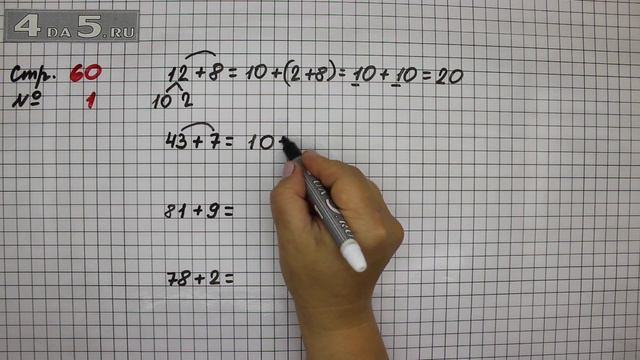 4 да 5.ru
Стр. 60
№ 1
12 + 8 = 10 + (2 + 8) = 10 + 10 = 20
10 2
43 + 7 = 10 +
81 + 9 =
78 + 2 =